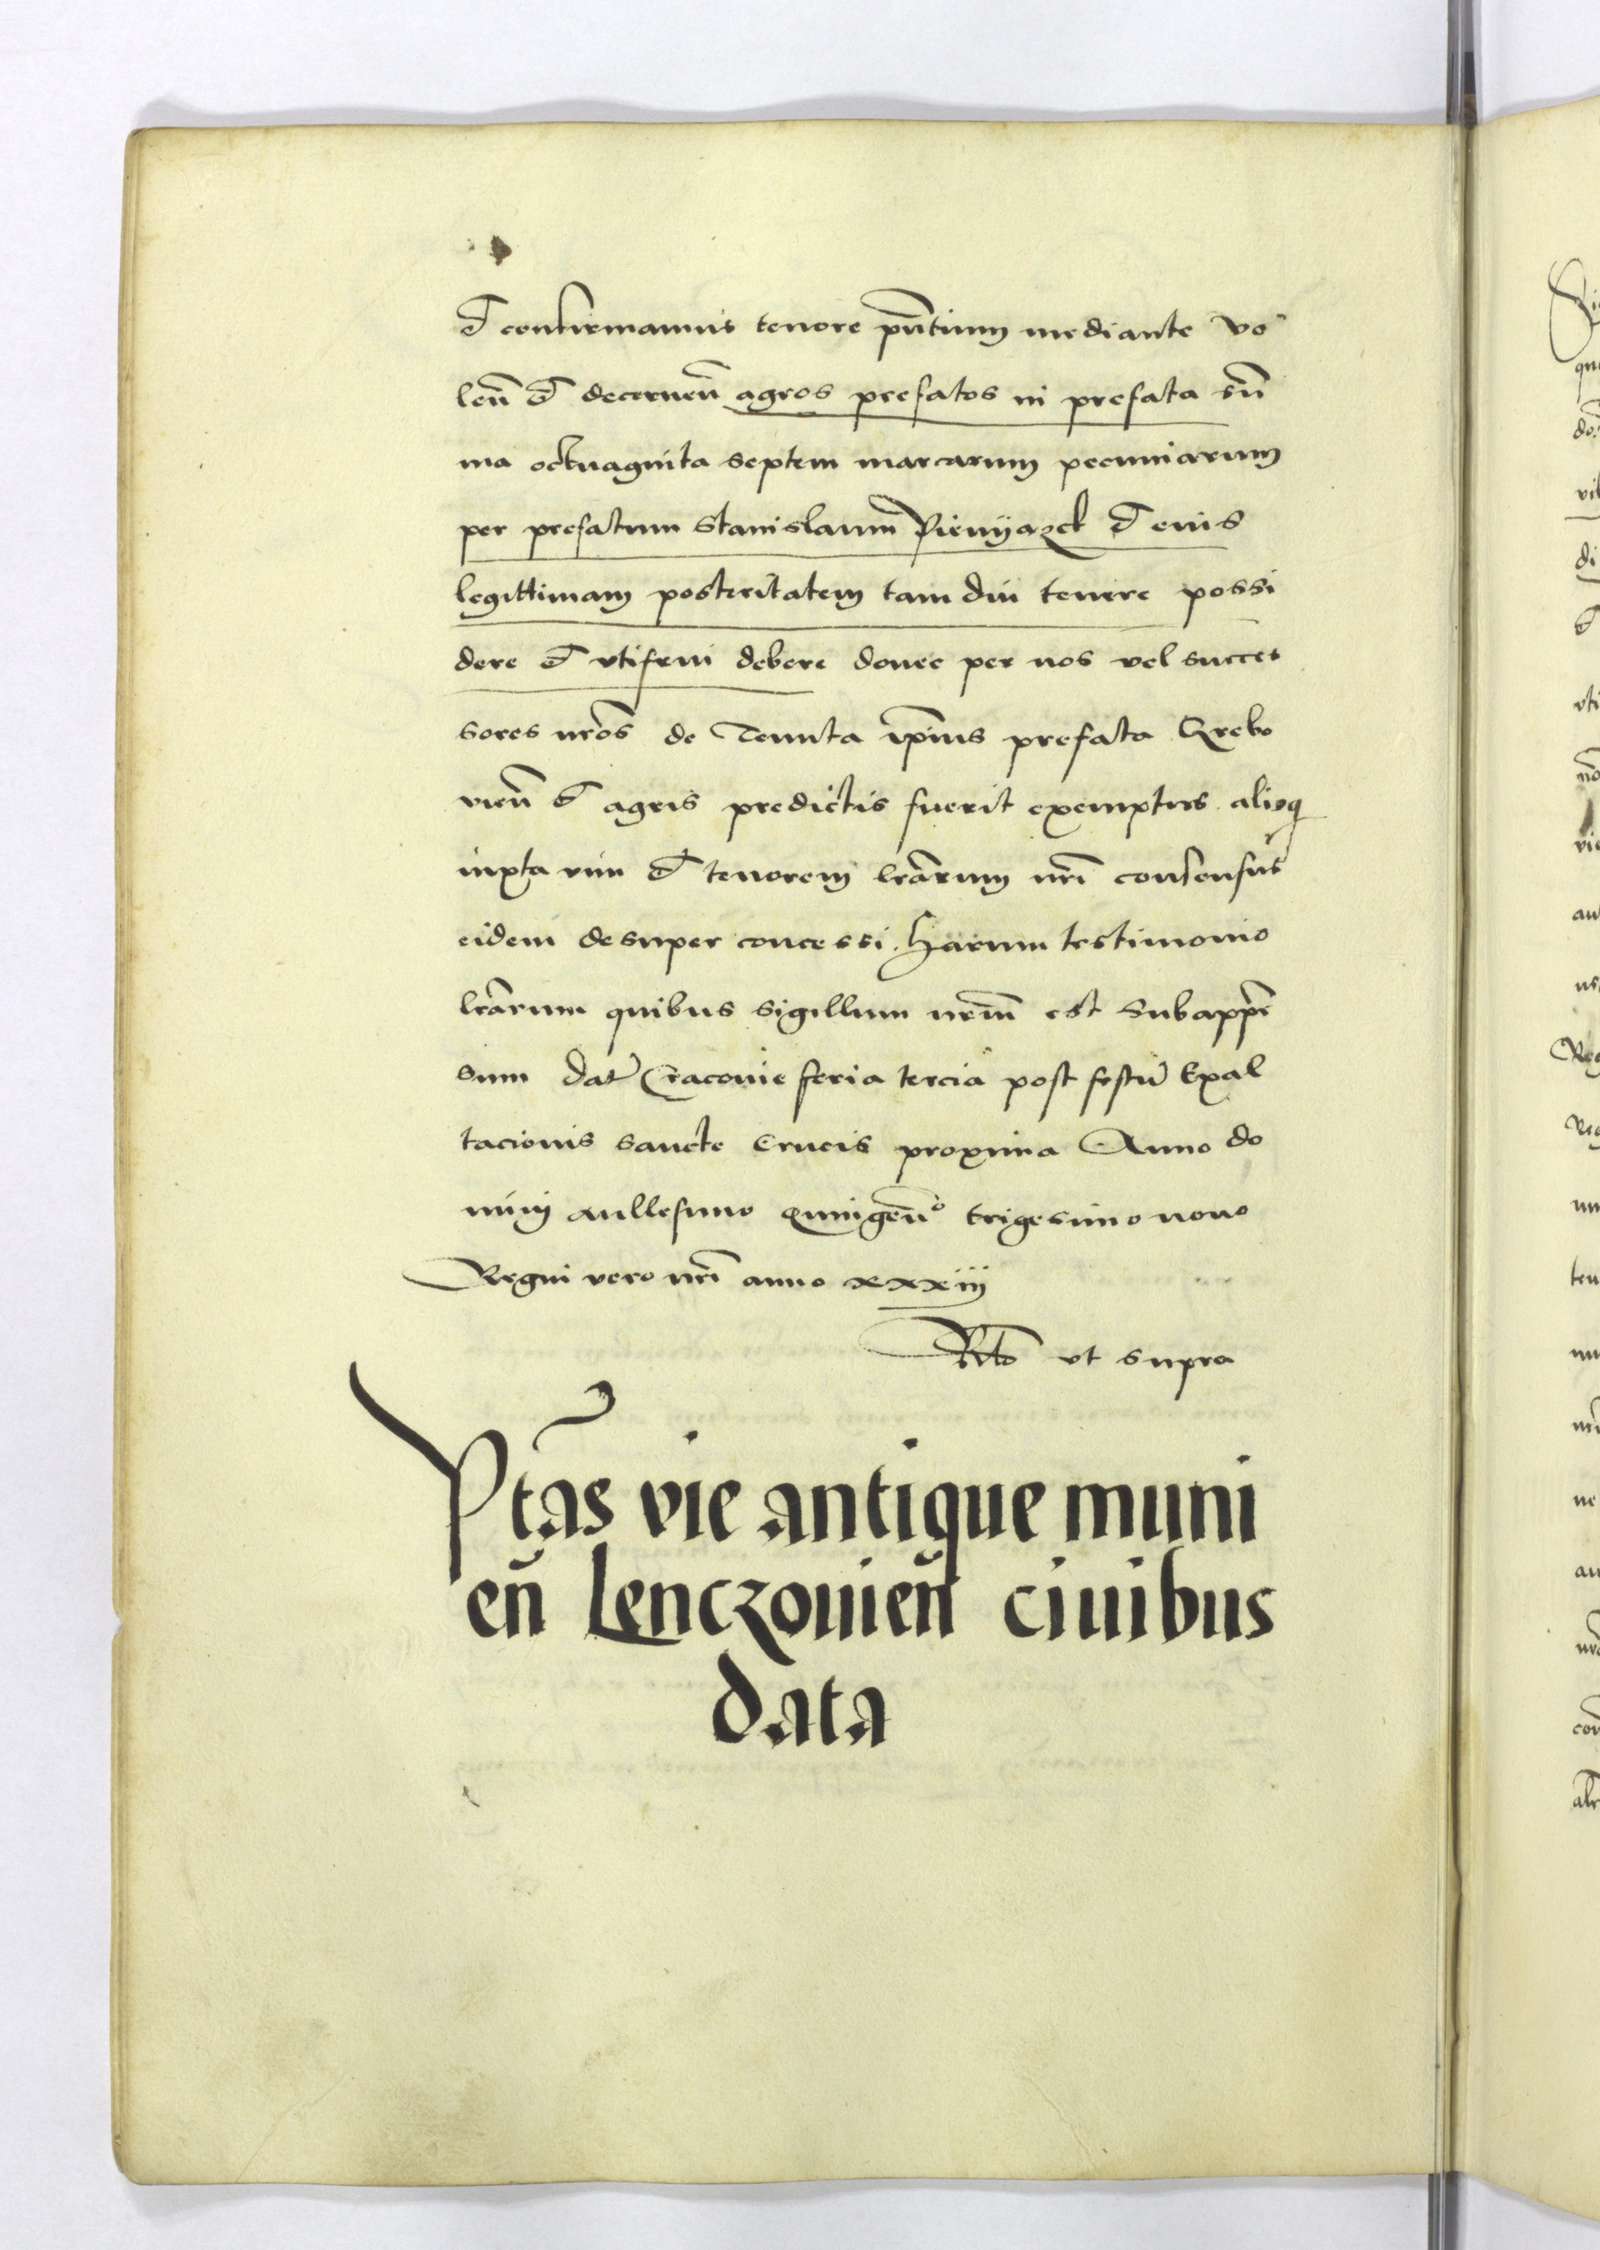 et confirmamus tenore pñtium mediante vo
leñ et decerneñ agros prefatos in prefata sũ
ma octuaginta septem marcarum pecuniarum
per prefatum Stanislaum Pienyazek et eius
legittimam posteritatem tam diu tenere possi
dere et vtifrui debere donec per nos vel succes
sores nr̃os de Tenuta ip̃ius prefata Grebo
vieñ et agris predictis fuerit exemptus alioq
iuxta vim et tenorem lr̃arum nr̃i consensus
eidem desuper concessi. Harum testimonio
lr̃arum quibus sigillum nr̃um est subappẽ
sum Dat Cracovie feria tercia post festũ Exal
tacionis sancte Crucis proxima Anno do
mini Millesimo Quingeñº trigesimo nono
Regni vero nr̃i anno xxxiij
Rlo vt supra
Ptãs vie antique muni
eñ Lenczovieñ civibus
data